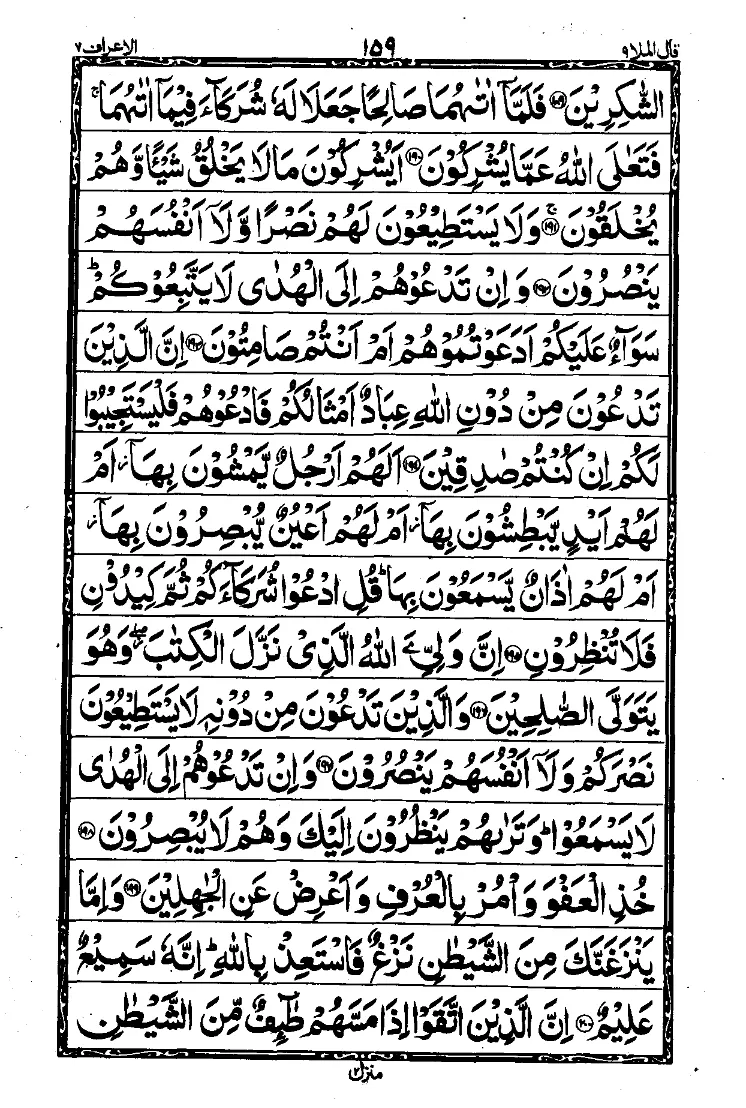 قال الملا ۹
۱۵۹
الاعراف ۷
الشّٰكِرِيْنَ ۝۱۸۹ فَلَمَّاۤ اٰتٰىهُمَا صَالِحًا جَعَلَا لَهٗ شُرَكَآءَ فِيْمَاۤ اٰتٰىهُمَا ۚ
فَتَعٰلَى اللّٰهُ عَمَّا يُشْرِكُوْنَ ۝۱۹۰ اَيُشْرِكُوْنَ مَا لَا يَخْلُقُ شَيْـًٔا وَّهُمْ
يُخْلَقُوْنَ ۝۱۹۱ۚ وَلَا يَسْتَطِيْعُوْنَ لَهُمْ نَصْرًا وَّلَاۤ اَنْفُسَهُمْ
يَنْصُرُوْنَ ۝۱۹۲ وَاِنْ تَدْعُوْهُمْ اِلَى الْهُدٰى لَا يَتَّبِعُوْكُمْ ؕ
سَوَآءٌ عَلَيْكُمْ اَدَعَوْتُمُوْهُمْ اَمْ اَنْتُمْ صَامِتُوْنَ ۝۱۹۳ اِنَّ الَّذِيْنَ
تَدْعُوْنَ مِنْ دُوْنِ اللّٰهِ عِبَادٌ اَمْثَالُكُمْ فَادْعُوْهُمْ فَلْيَسْتَجِيْبُوْا
لَكُمْ اِنْ كُنْتُمْ صٰدِقِيْنَ ۝۱۹۴ اَلَهُمْ اَرْجُلٌ يَّمْشُوْنَ بِهَاۤ ؗ اَمْ
لَهُمْ اَيْدٍ يَّبْطِشُوْنَ بِهَاۤ ؗ اَمْ لَهُمْ اَعْيُنٌ يُّبْصِرُوْنَ بِهَاۤ ؗ
اَمْ لَهُمْ اٰذَانٌ يَّسْمَعُوْنَ بِهَا ؕ قُلِ ادْعُوْا شُرَكَآءَكُمْ ثُمَّ كِيْدُوْنِ
فَلَا تُنْظِرُوْنِ ۝۱۹۵ اِنَّ وَلِيِّ َۧ اللّٰهُ الَّذِيْ نَزَّلَ الْكِتٰبَ ۖؗ وَهُوَ
يَتَوَلَّى الصّٰلِحِيْنَ ۝۱۹۶ وَالَّذِيْنَ تَدْعُوْنَ مِنْ دُوْنِهٖ لَا يَسْتَطِيْعُوْنَ
نَصْرَكُمْ وَلَاۤ اَنْفُسَهُمْ يَنْصُرُوْنَ ۝۱۹۷ وَاِنْ تَدْعُوْهُمْ اِلَى الْهُدٰى
لَا يَسْمَعُوْا ؕ وَتَرٰىهُمْ يَنْظُرُوْنَ اِلَيْكَ وَهُمْ لَا يُبْصِرُوْنَ ۝۱۹۸
خُذِ الْعَفْوَ وَاْمُرْ بِالْعُرْفِ وَاَعْرِضْ عَنِ الْجٰهِلِيْنَ ۝۱۹۹ وَاِمَّا
يَنْزَغَنَّكَ مِنَ الشَّيْطٰنِ نَزْغٌ فَاسْتَعِذْ بِاللّٰهِ ؕ اِنَّهٗ سَمِيْعٌ
عَلِيْمٌ ۝۲۰۰ اِنَّ الَّذِيْنَ اتَّقَوْا اِذَا مَسَّهُمْ طٰٓىِٕفٌ مِّنَ الشَّيْطٰنِ
منزل ۲